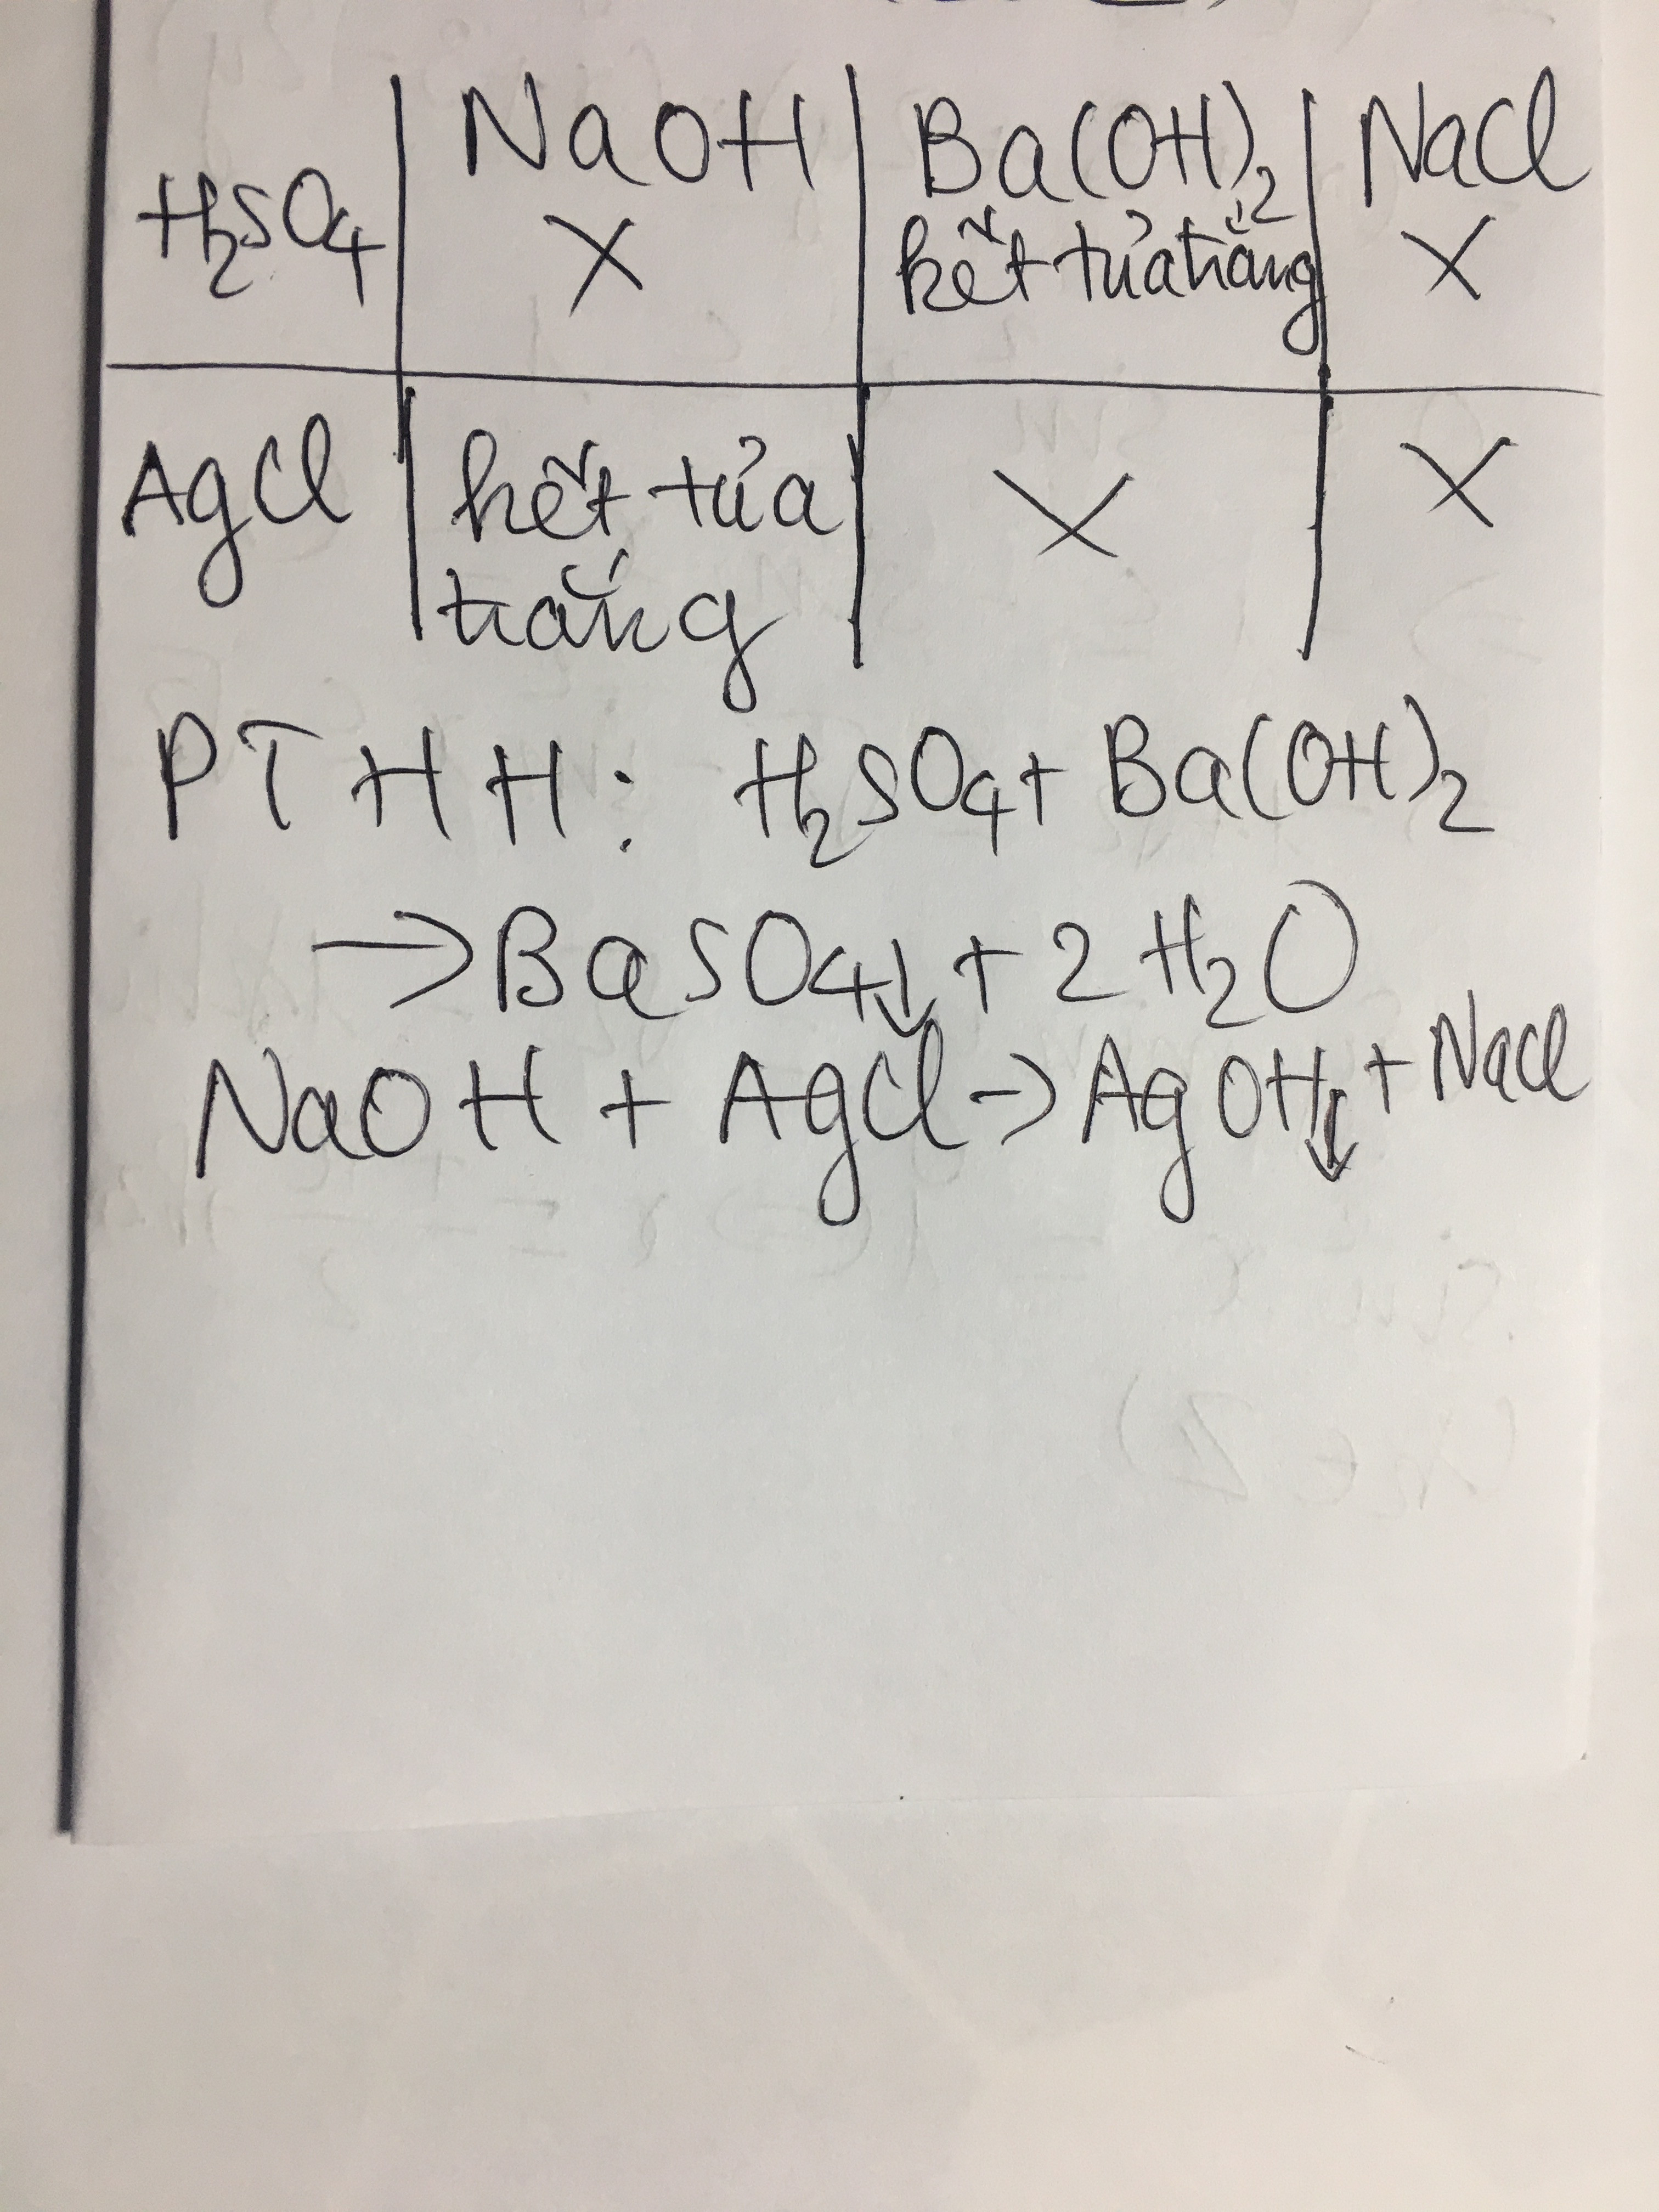 NaOH Ba(OH)2 NaCl
H2SO4 X kết tủa trắng X
AgCl kết tủa X X
trắng
PTHH: H2SO4 + Ba(OH)2
→ BaSO4↓ + 2H2O
NaOH + AgCl → AgOH↓ + NaCl